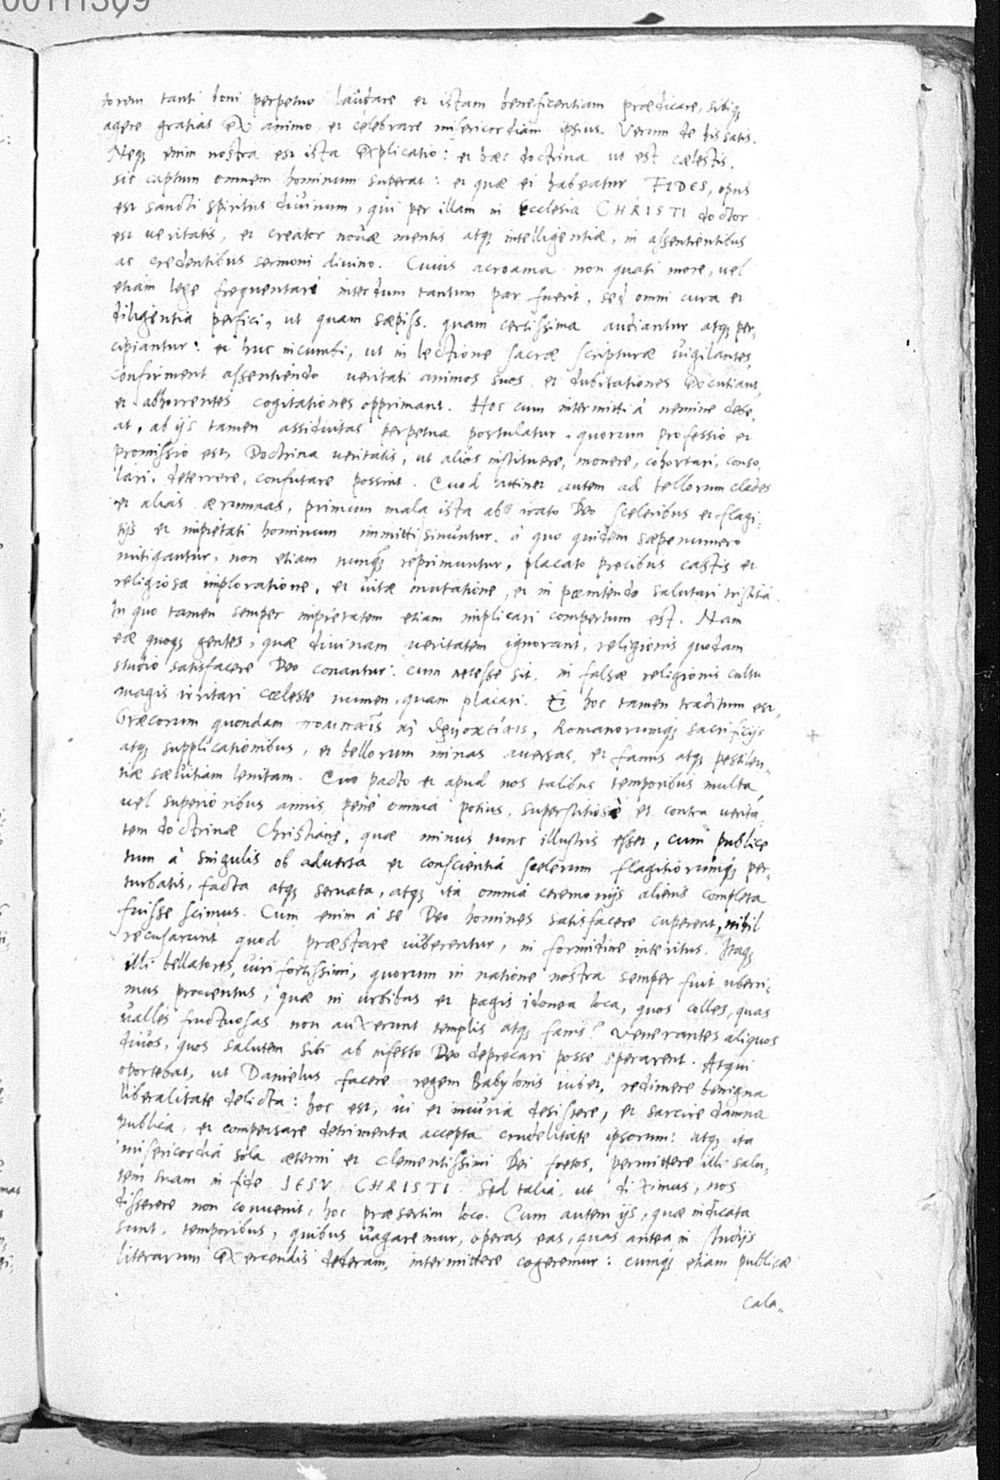 00111309
torem tanti boni perpetuo laudare et istam beneficentiam prædicare, sibiq;
agere gratias ex animo et celebrare misericordiam ipsius. Verum de his satis.
Neq; enim nostra est ista explicatio: et hæc doctrina ut est cælestis,
sic captum omnem hominum superat: et quæ ei habeatur FIDES, opus
est sancti spiritus divinum, qui per illam in Ecclesia CHRISTI doctor
est veritatis, et creator novæ mentis atq; intelligentiæ, in assentientibus
ac credentibus sermoni divino. Cuius acroama non quasi more, vel
etiam lege frequentari interdum tantum par fuerit, sed omni cura et
diligentia perfici, ut quam sæpiss. quam certissima audiantur atq; per,
cipiantur: et huc incumbi, ut in lectione sacræ scripturæ vigilantes,
confirment assentiendo veritati animos suos, et dubitationes excutiant,
et abhorrentes cogitationes opprimant. Hoc cum intermitti à nemine debe,
at, ab ijs tamen assiduitas perpetua postulatur, quorum professio et
promissio est, Doctrina veritatis, ut alios instituere, monere, cohortari, conso,
lari, deterrere, confutare possint. Quod attinet autem ad bellorum clades
et alias ærumnas, primum mala ista ab irato Deo sceleribus et flagi,
tijs et impietati hominum immitti sinuntur. à quo quidem sæpenumero
mitigantur, non etiam nunq; reprimuntur, placato precibus castis et
religiosa imploratione, et vitæ mutatione, et in pœnitendo salutari tristitia.
In quo tamen semper impietatem etiam implicari compertum est. Nam
eæ quoq; gentes, quæ divinam veritatem ignorant, religionis quodam
studio satisfacere Deo conantur: cum necesse sit, in falsæ religionis cultu
magis irritari cœleste numen, quam placari. Et hoc tamen traditum est,
Græcorum quondam Romanorumq; sacrificijs
atq; supplicationibus, et bellorum minas aversas, et famis atq; pestilen,
tiæ sævitiam lenitam. Quo pacto et apud nos talibus temporibus multa,
vel superioribus annis pene omnia potius, superstitiosè et contra verita,
tem doctrinæ Christianę, quæ minus tunc illustris esset, cum publice
tum à singulis ob adversa et conscientia scelerum flagitiorumq; per,
turbatis, facta atq; servata, atq; ita omnia ceremonijs alienis completa
fuisse scimus. Cum enim à se Deo homines satisfacere cuperent, nihil
recusarunt quod præstare iuberentur, in formidine interitus. Itaq;
illi bellatores, viri fortissimi, quorum in natione nostra semper fuit uberri,
mus proventus, quæ in urbibus et pagis idonea loca, quos colles, quas
valles fructuosas non auxerunt templis atq; fanis? Venerantes aliquos
divos, quos salutem sibi ab infesto Deo deprecari posse sperarent. Atqui
oportebat, ut Danielus facere regem Babylonis iubet, redimere benigna
liberalitate delicta: hoc est, vi et iniuria desistere, et sarcire damna
publica, et compensare detrimenta accepta crudelitate ipsorum: atq; ita
misericordia sola æterni et clementissimi Dei fretos, permittere illi salu,
tem suam in fide JESV CHRISTI. Sed talia, ut diximus, nos
disserere non convenit, hoc præsertim loco. Cum autem ijs, quæ indicata
sunt, temporibus, quibus vagaremur, operas eas, quas antea in studijs
literarum exercendis dederam, intermittere cogeremur: cumq; etiam publicæ
cala,